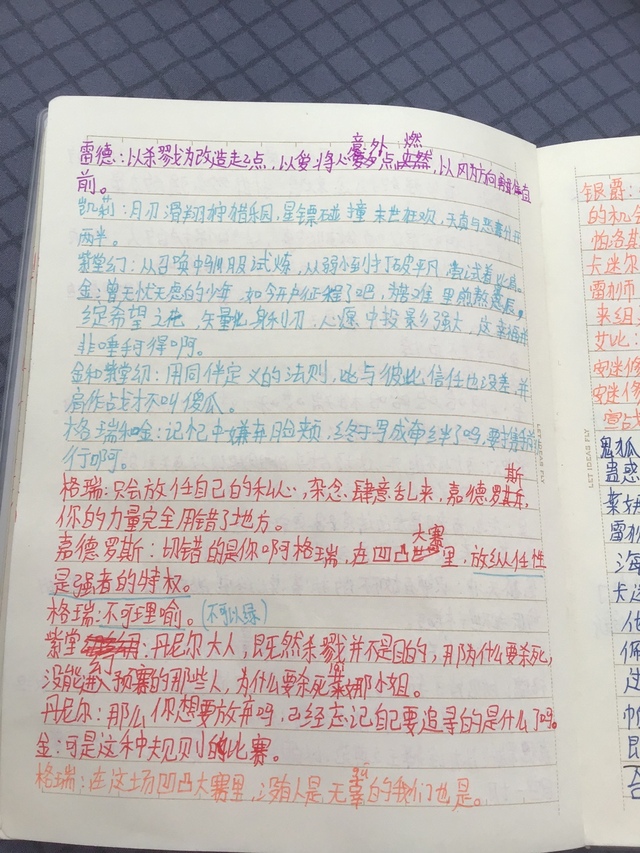 雷德：以杀戮为改造起点，以爱将心意外点燃，以风为方向
前。
凯莉：月刃滑翔狩猎乐园，星镖碰撞末世狂欢，天真与恶毒分开
两半。
紫堂幻：从召唤中驯服试炼，从弱小到打破平凡，尝试着
金：曾无忧无虑的少年，如今开启征程了吧，磨难里煎熬
绽希望之花，矢量化身利刃，心愿中投影强大，这幸福并
非唾手可得啊。
金和紫堂幻：用同伴定义的法则，比与彼此信任也没差，并
肩作战才不叫傻瓜。
格瑞和金：记忆中嫌弃脸颊，终于写成牵绊了吗，要
行啊。
格瑞：只会放任自己的私心，杂念肆意乱来，嘉德罗斯，
你的力量完全用错了地方。
嘉德罗斯：切错的是你啊格瑞，在凹凸大赛里，放纵任性
是强者的特权。
格瑞：不可理喻。(不可以绿)
紫堂幻：丹尼尔大人，既然杀戮并不是目的，那为什么要杀死
没能进入预赛的那些人，为什么要杀死莱娜小姐。
丹尼尔：那么你想要放弃吗，已经忘记自己要追寻的是什么了吗。
金：可是这种规则的比赛。
格瑞：在这场凹凸大赛里，没有人是无辜的我们也是。
LET IDEAS FLY
银爵：
的机
帕洛斯
卡米尔
雷狮
来组
艾比：
安迷修
安迷修
宫占
鬼狐
蛊惑
莱娜
雷狮
海
卡米
他
佩
这
帕
即